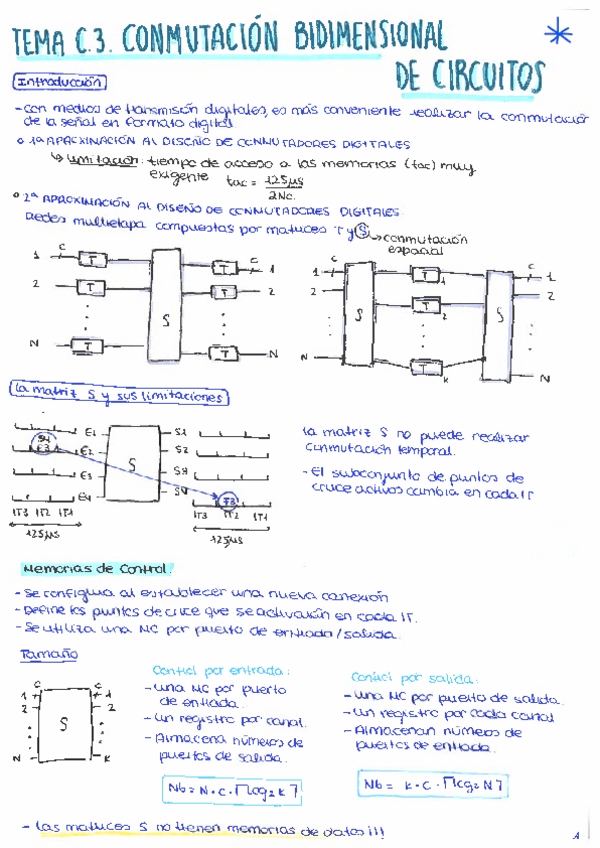 TEMA C.3. CONMUTACIÓN BIDIMENSIONAL
DE CIRCUITOS
Introducción
-Con medios de transmisión digitales, es más conveniente realizar la conmutación
de la señal en formato digital.
1ª APROXINACIÓN AL DISEÑO DE CONMUTADORES DIGITALES
↳ Limitación: tiempo de acceso a las memorias (tac) muy
exigente tac = 125µs
2Nc.
2ª APROXIMACIÓN AL DISEÑO DE CONMUTADORES DIGITALES.
Redes multietapa compuestas por matrices T y S → conmutación
espacial
1 C T T C 1
2 T T 2
S
N T T N
1 C T 1 C 1
2 T 2 2
S S
N T K N
La matriz S y sus limitaciones
E1 S1
S4
E3 E2 S2
S
E3 S3
E4 S4
F3
IT3 IT2 IT1 IT3 IT2 IT1
125µs 125µs
La matriz S no puede realizar
conmutación temporal.
- El subconjunto de puntos de
cruce activos cambia en cada IT
Memorias de Control.
- Se configura al establecer una nueva conexión
- Define los puntos de cruce que se activarán en cada IT.
- Se utiliza una MC por puerto de entrada/salida.
Tamaño
C C
1 1
2 2
S
N K
Control por entrada:
- Una MC por puerto
de entrada.
- Un registro por canal.
- Almacena números de
puertos de salida.
Nb = N · C · ⌈log2 K⌉
Control por salida:
- Una MC por puerto de salida.
- Un registro por cada canal
- Almacenan números de
puertos de entrada.
Nb = K · C · ⌈log2 N⌉
- Las matrices S no tienen memorias de datos!!!